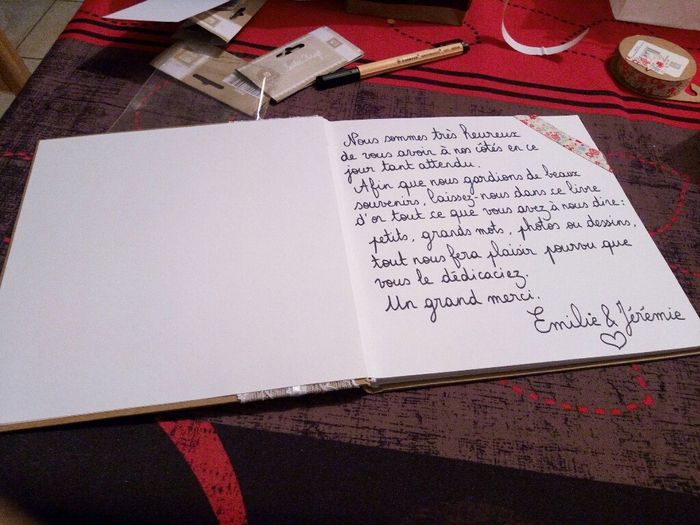 Nous sommes très heureux
de vous avoir à nos côtés en ce
jour tant attendu.
Afin que nous gardions de beaux
souvenirs, laissez-nous dans ce livre
d'or tout ce que vous avez à nous dire :
petits, grands mots, photos ou dessins,
tout nous fera plaisir pourvu que
vous le dédicaciez.
Un grand merci.
Emilie & Jérémie